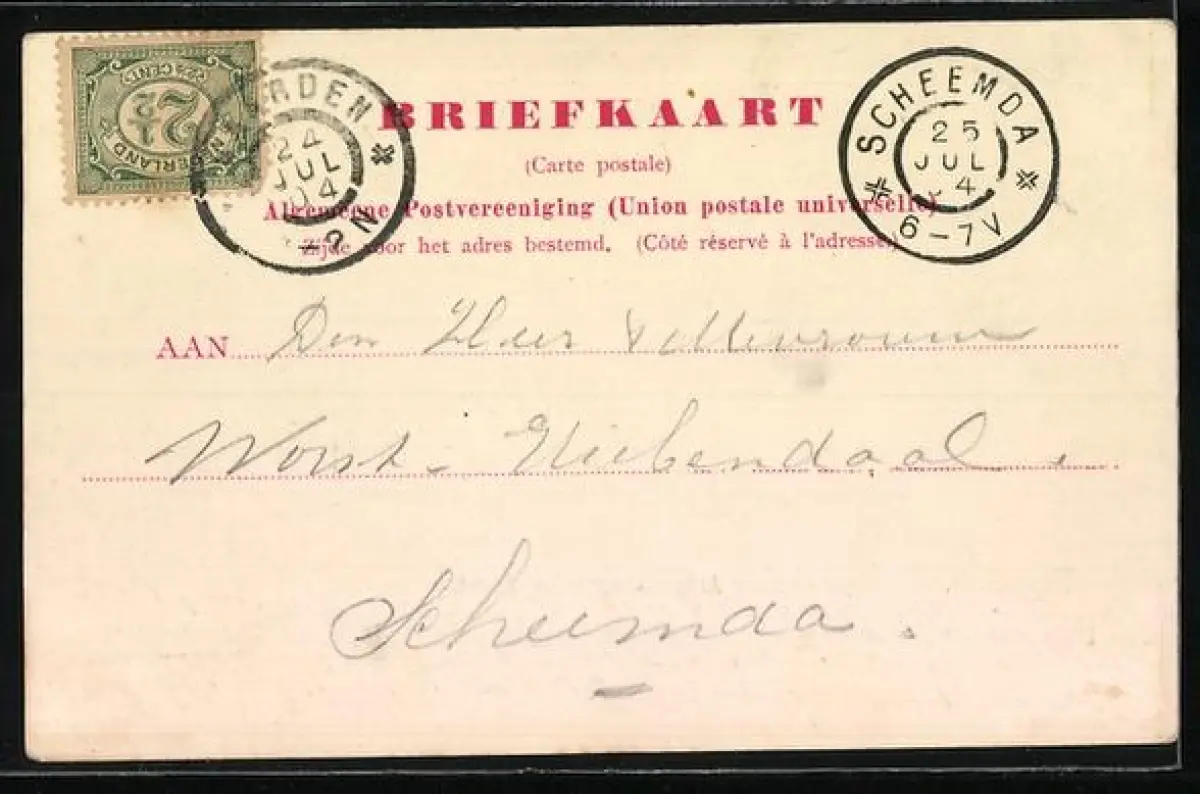 NEDERLAND
2½
2½ CENT
RDEN
24
JUL
04
2N
BRIEFKAART
(Carte postale)
Algemeene Postvereeniging (Union postale universelle)
Zijde voor het adres bestemd. (Côté réservé à l'adresse.)
SCHEEMDA
25
JUL
04
6-7V
AAN Den Heer & Mevrouw
Worst-
Scheemda.